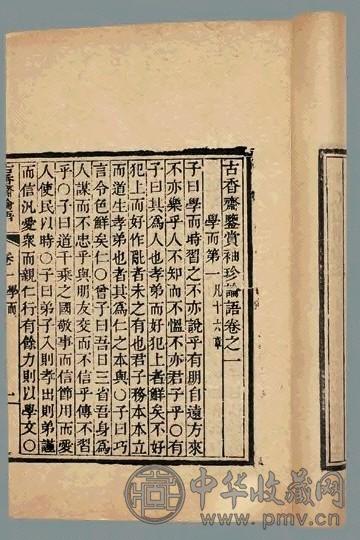 古香齋鑒賞袖珍論語卷之一
學而第一 凡十六章
子曰學而時習之不亦說乎有朋自遠方來
不亦樂乎人不知而不慍不亦君子乎○有
子曰其爲人也孝弟而好犯上者鮮矣不好
犯上而好作亂者未之有也君子務本本立
而道生孝弟也者其爲仁之本與○子曰巧
言令色鮮矣仁○曾子曰吾日三省吾身爲
人謀而不忠乎與朋友交而不信乎傳不習
乎○子曰道千乘之國敬事而信節用而愛
人使民以時○子曰弟子入則孝出則弟謹
而信汎愛衆而親仁行有餘力則以學文○
卷一 學而 一
中华收藏网
www.pmv.cn